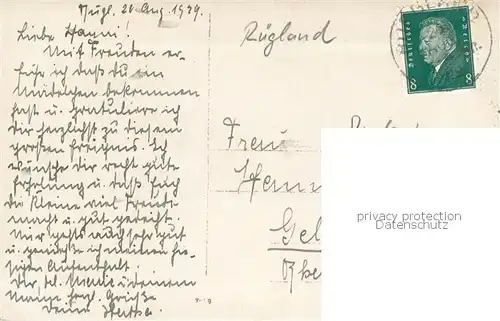 Rügl. 21 Aug. 1929.
Liebe Hanni!
Mit Freuden er-
fuhr ich daß du ein
Mädelchen bekommen
hast u. gratuliere ich
dir herzlichst zu diesem
großen Ereignis. Ich
wünsche dir recht gute
Erholung u. daß Euch
die Kleine viel Freude
macht u. gut gedeiht.
Mir gehts auch sehr gut
u. genieße ich meinen hie-
sigen Aufenthalt.
Dir, kl. u. deinem
Mann herzl. Grüße
Deine
Rügland
Deutsches Reich
8 8
Frau
Gel
privacy protection
Datenschutz